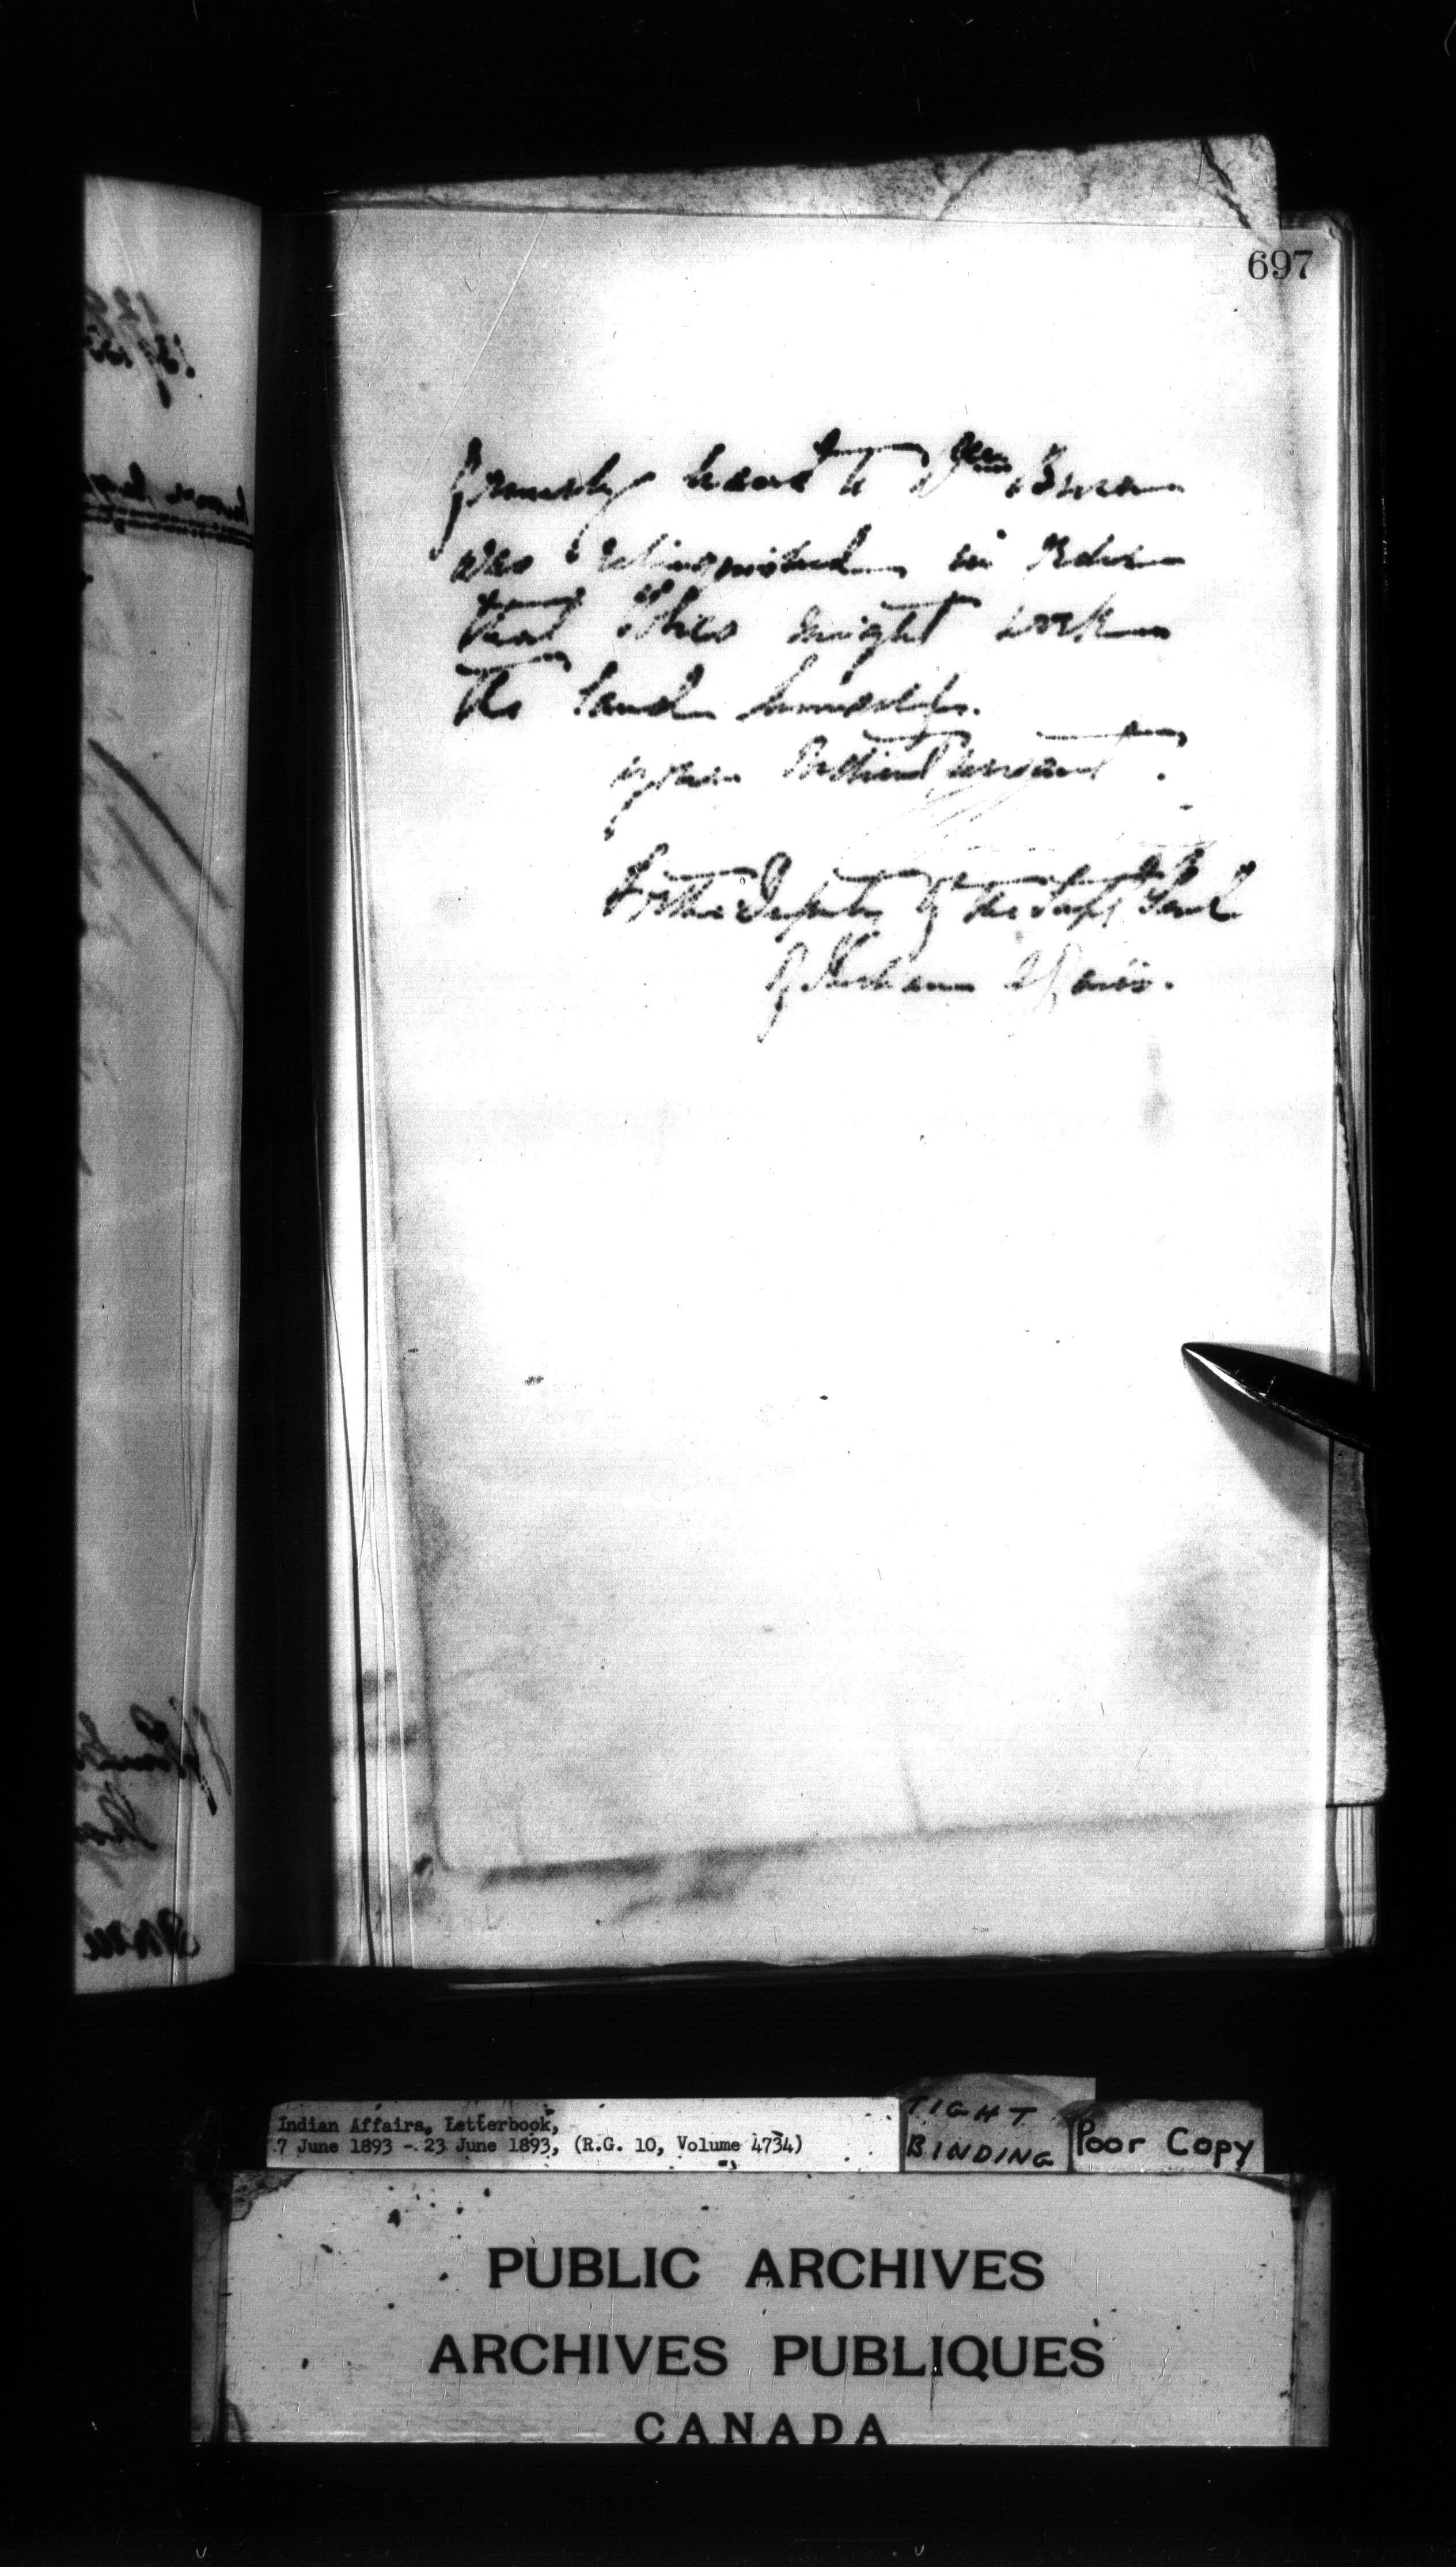 697
formerly leased to Wm
was relinquished in order
that might work
the land himself.
Your obedient servant.
For the Deputy of the Supt Genl
of Indian Affairs.
Indian Affairs, Letterbook,
7 June 1893 - 23 June 1893, (R.G. 10, Volume 4734)
TIGHT
BINDING
Poor Copy
PUBLIC ARCHIVES
ARCHIVES PUBLIQUES
CANADA